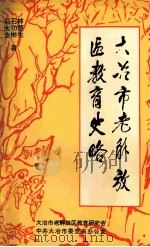 大冶市老解放
区教育史略
林楚生
石功彬
著
大冶市老解放区教育研究会
中共大冶市委党史办公室